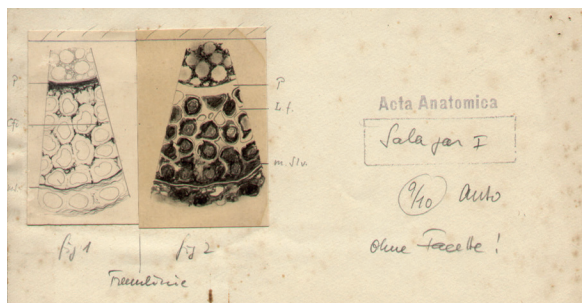 P
P
Lf.
m. Slv.
fig 1
fig 2
Trennlinie
Acta Anatomica
Salazar I
9/10 Auto
Ohne Facette!